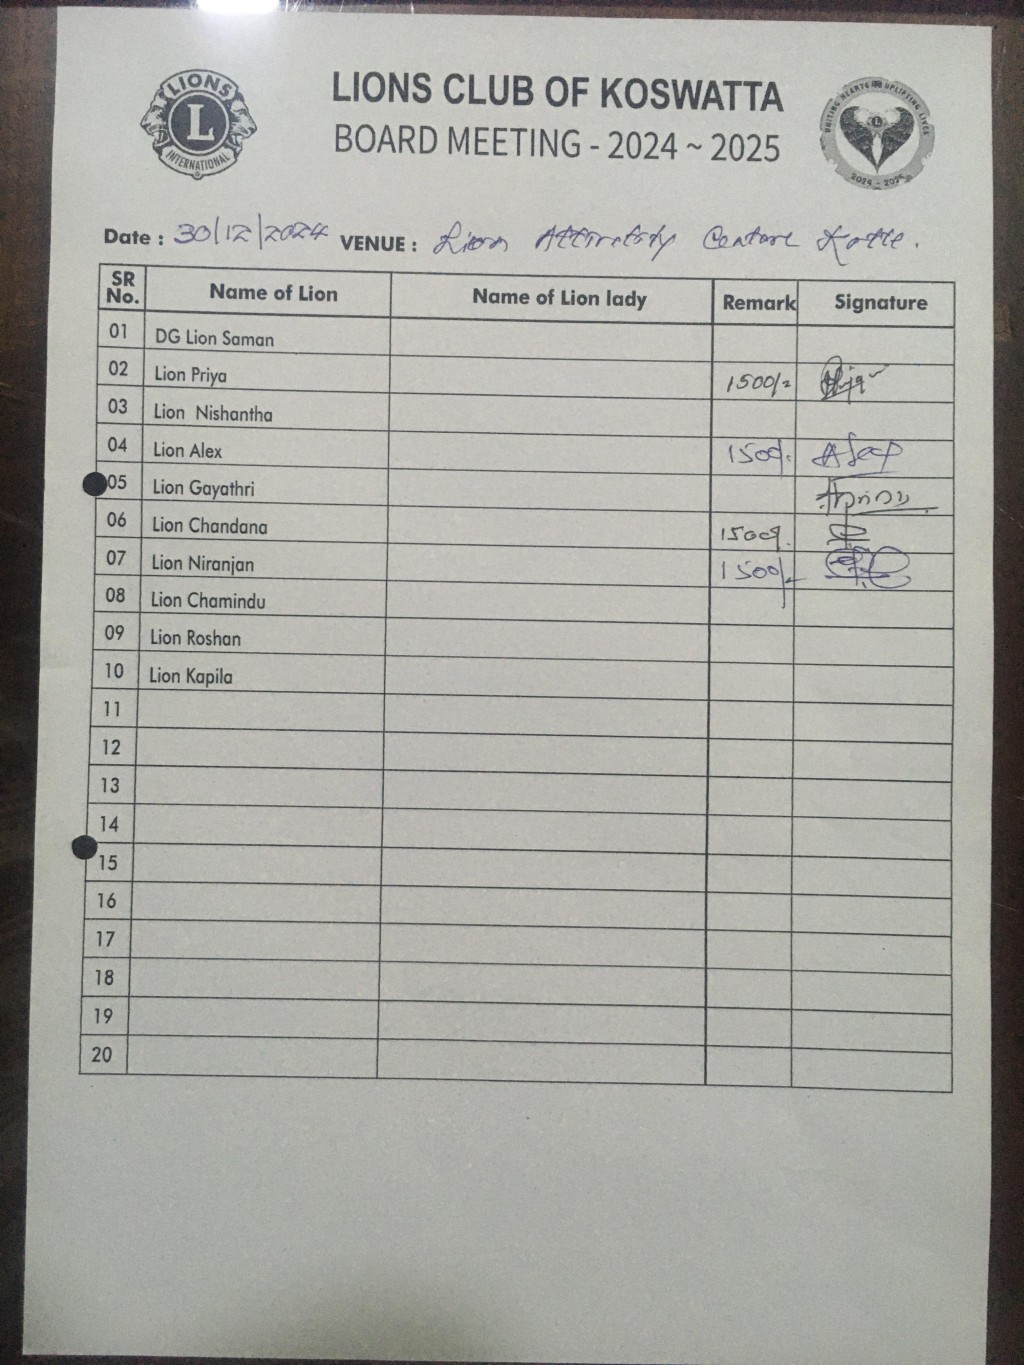 LIONS
L
INTERNATIONAL
LIONS CLUB OF KOSWATTA
BOARD MEETING - 2024 ~ 2025
UNITING HEARTS UPLIFTING LIVES
2024 - 2025
Date : 30/12/2024 VENUE : Lion Centre Kotte.
SR No. Name of Lion Name of Lion lady Remark Signature
01 DG Lion Saman
02 Lion Priya 1500/=
03 Lion Nishantha
04 Lion Alex 1500/-
05 Lion Gayathri
06 Lion Chandana 1500/-
07 Lion Niranjan 1500/-
08 Lion Chamindu
09 Lion Roshan
10 Lion Kapila
11
12
13
14
15
16
17
18
19
20